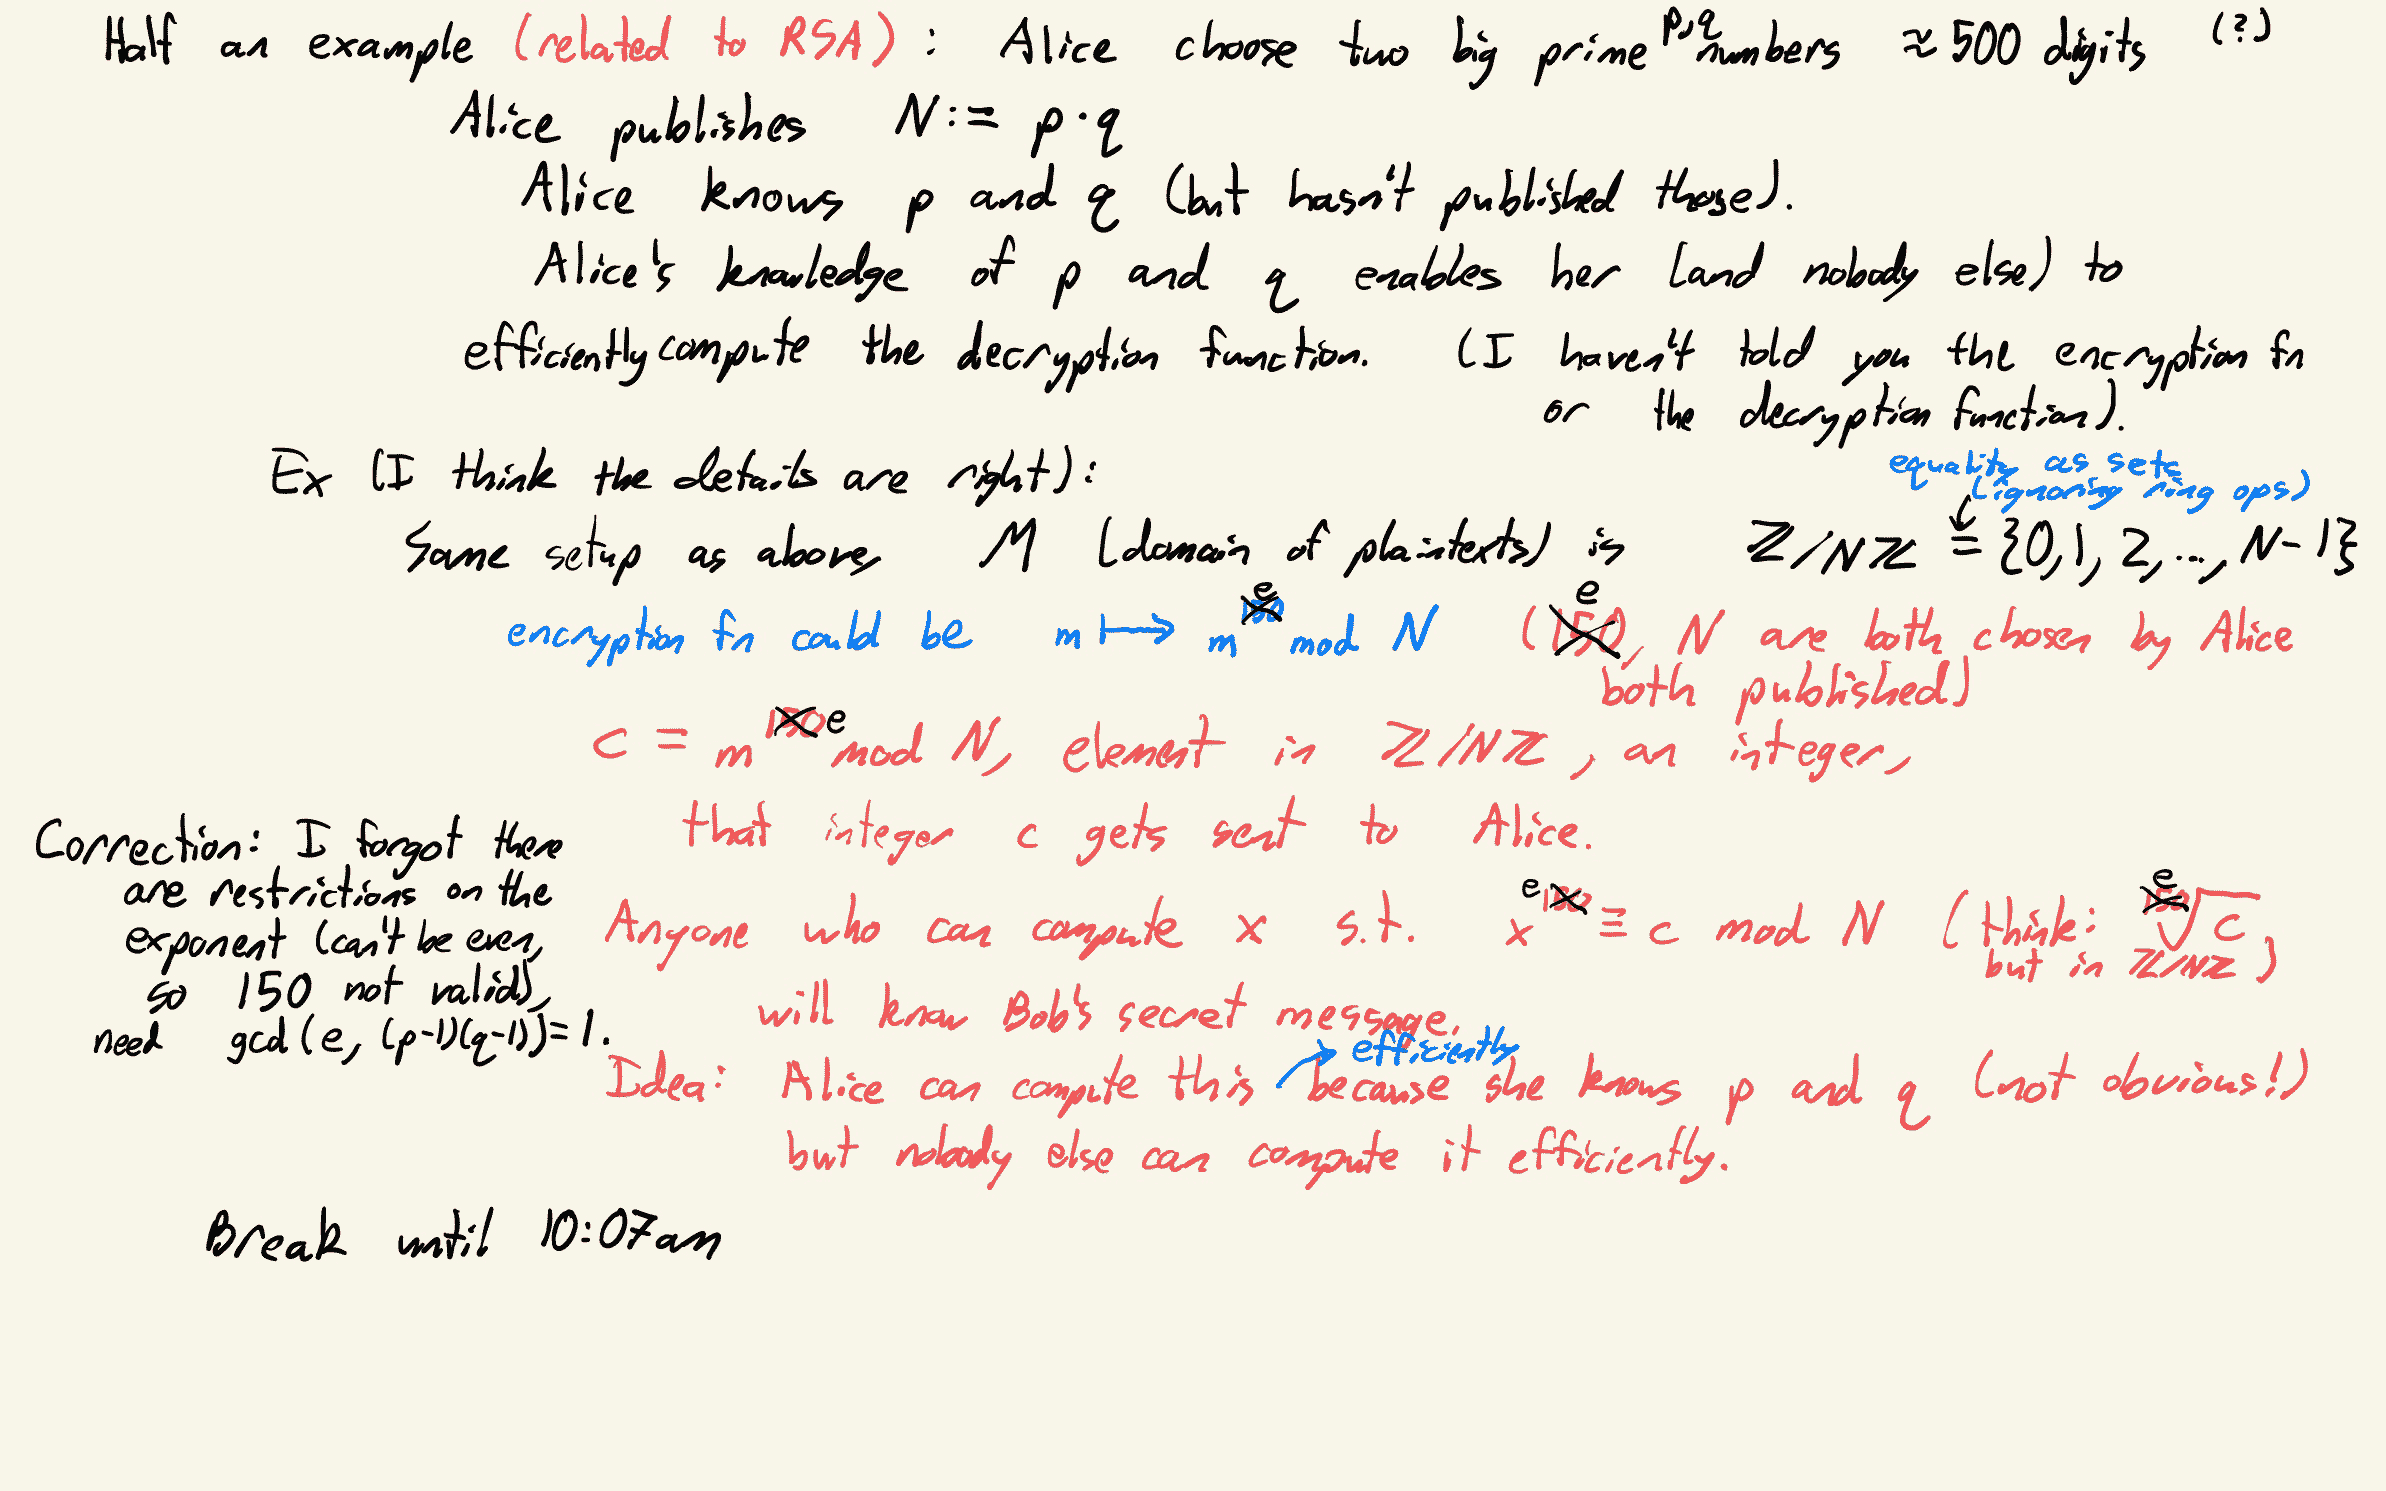 Half an example (related to RSA): Alice choose two big prime p,q numbers ≈ 500 digits (?)
Alice publishes N := p·q
Alice knows p and q (but hasn't published those).
Alice's knowledge of p and q enables her (and nobody else) to
efficiently compute the decryption function. (I haven't told you the encryption fn
or the decryption function).
Ex (I think the details are right):
equality as sets
(ignoring ring ops)
Same setup as above, M (domain of plaintexts) is ℤ/Nℤ = {0,1,2,...,N-1}
encryption fn could be m ↦ m^150 e mod N (150 e, N are both chosen by Alice
both published)
c = m^150 e mod N, element in ℤ/Nℤ, an integer,
that integer c gets sent to Alice.
Correction: I forgot there
are restrictions on the
exponent (can't be even,
so 150 not valid),
need gcd(e, (p-1)(q-1))=1.
Anyone who can compute x s.t. x^e 150 ≡ c mod N (think: 150 e √c,
but in ℤ/Nℤ)
will know Bob's secret message.
Idea: Alice can compute this → efficiently because she knows p and q (not obvious!)
but nobody else can compute it efficiently.
Break until 10:07am